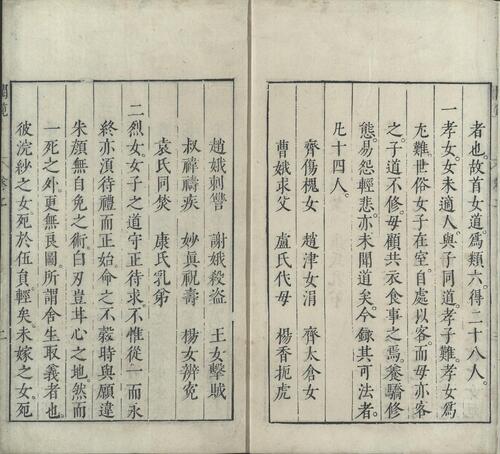 者也。故首女道。爲類六。得二十八人。
一孝女。女未適人。與子同道。孝子難。孝女爲
尤難。世俗女子在室。自處以客。而母亦客
之。子道不修。母顧共衣食事之焉。養驕修
態。易怨輕悲。亦未聞道矣。今錄其可法者
凡十四人。
齊傷槐女 趙津女娟 齊太倉女
曹娥求父 盧氏代母 楊香扼虎
趙娥刺讐 謝娥殺盜 王女擊賊
叔禕禱疾 妙眞祝壽 楊女辨寃
袁氏同焚 康氏乳弟
二烈女。女子之道。守正待求。不惟從一而永
終。亦須待禮而正始。命之不穀。時與願違
朱顏無自免之術。白刃豈甘心之地。然而
一死之外。更無良圖。所謂舍生取義者也。
彼浣紗之女。死於伍員。輕矣。未嫁之女。死
閨範
卷之
二